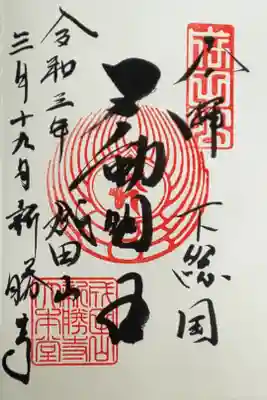 奉拝 下総国
不動明王
成田山
新勝寺
令和三年
三月十九日
成田山
新勝寺
大本堂